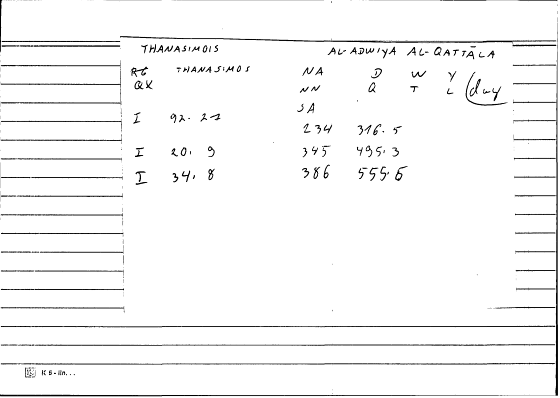 THANASIMOIS AL-ADWIYA AL-QATTĀLA
RG THANASIMOS NA D W Y
QK NN Q T L day
SA
I 92.21
234 316.5
I 20.9 345 495.3
I 34.8 386 555.6